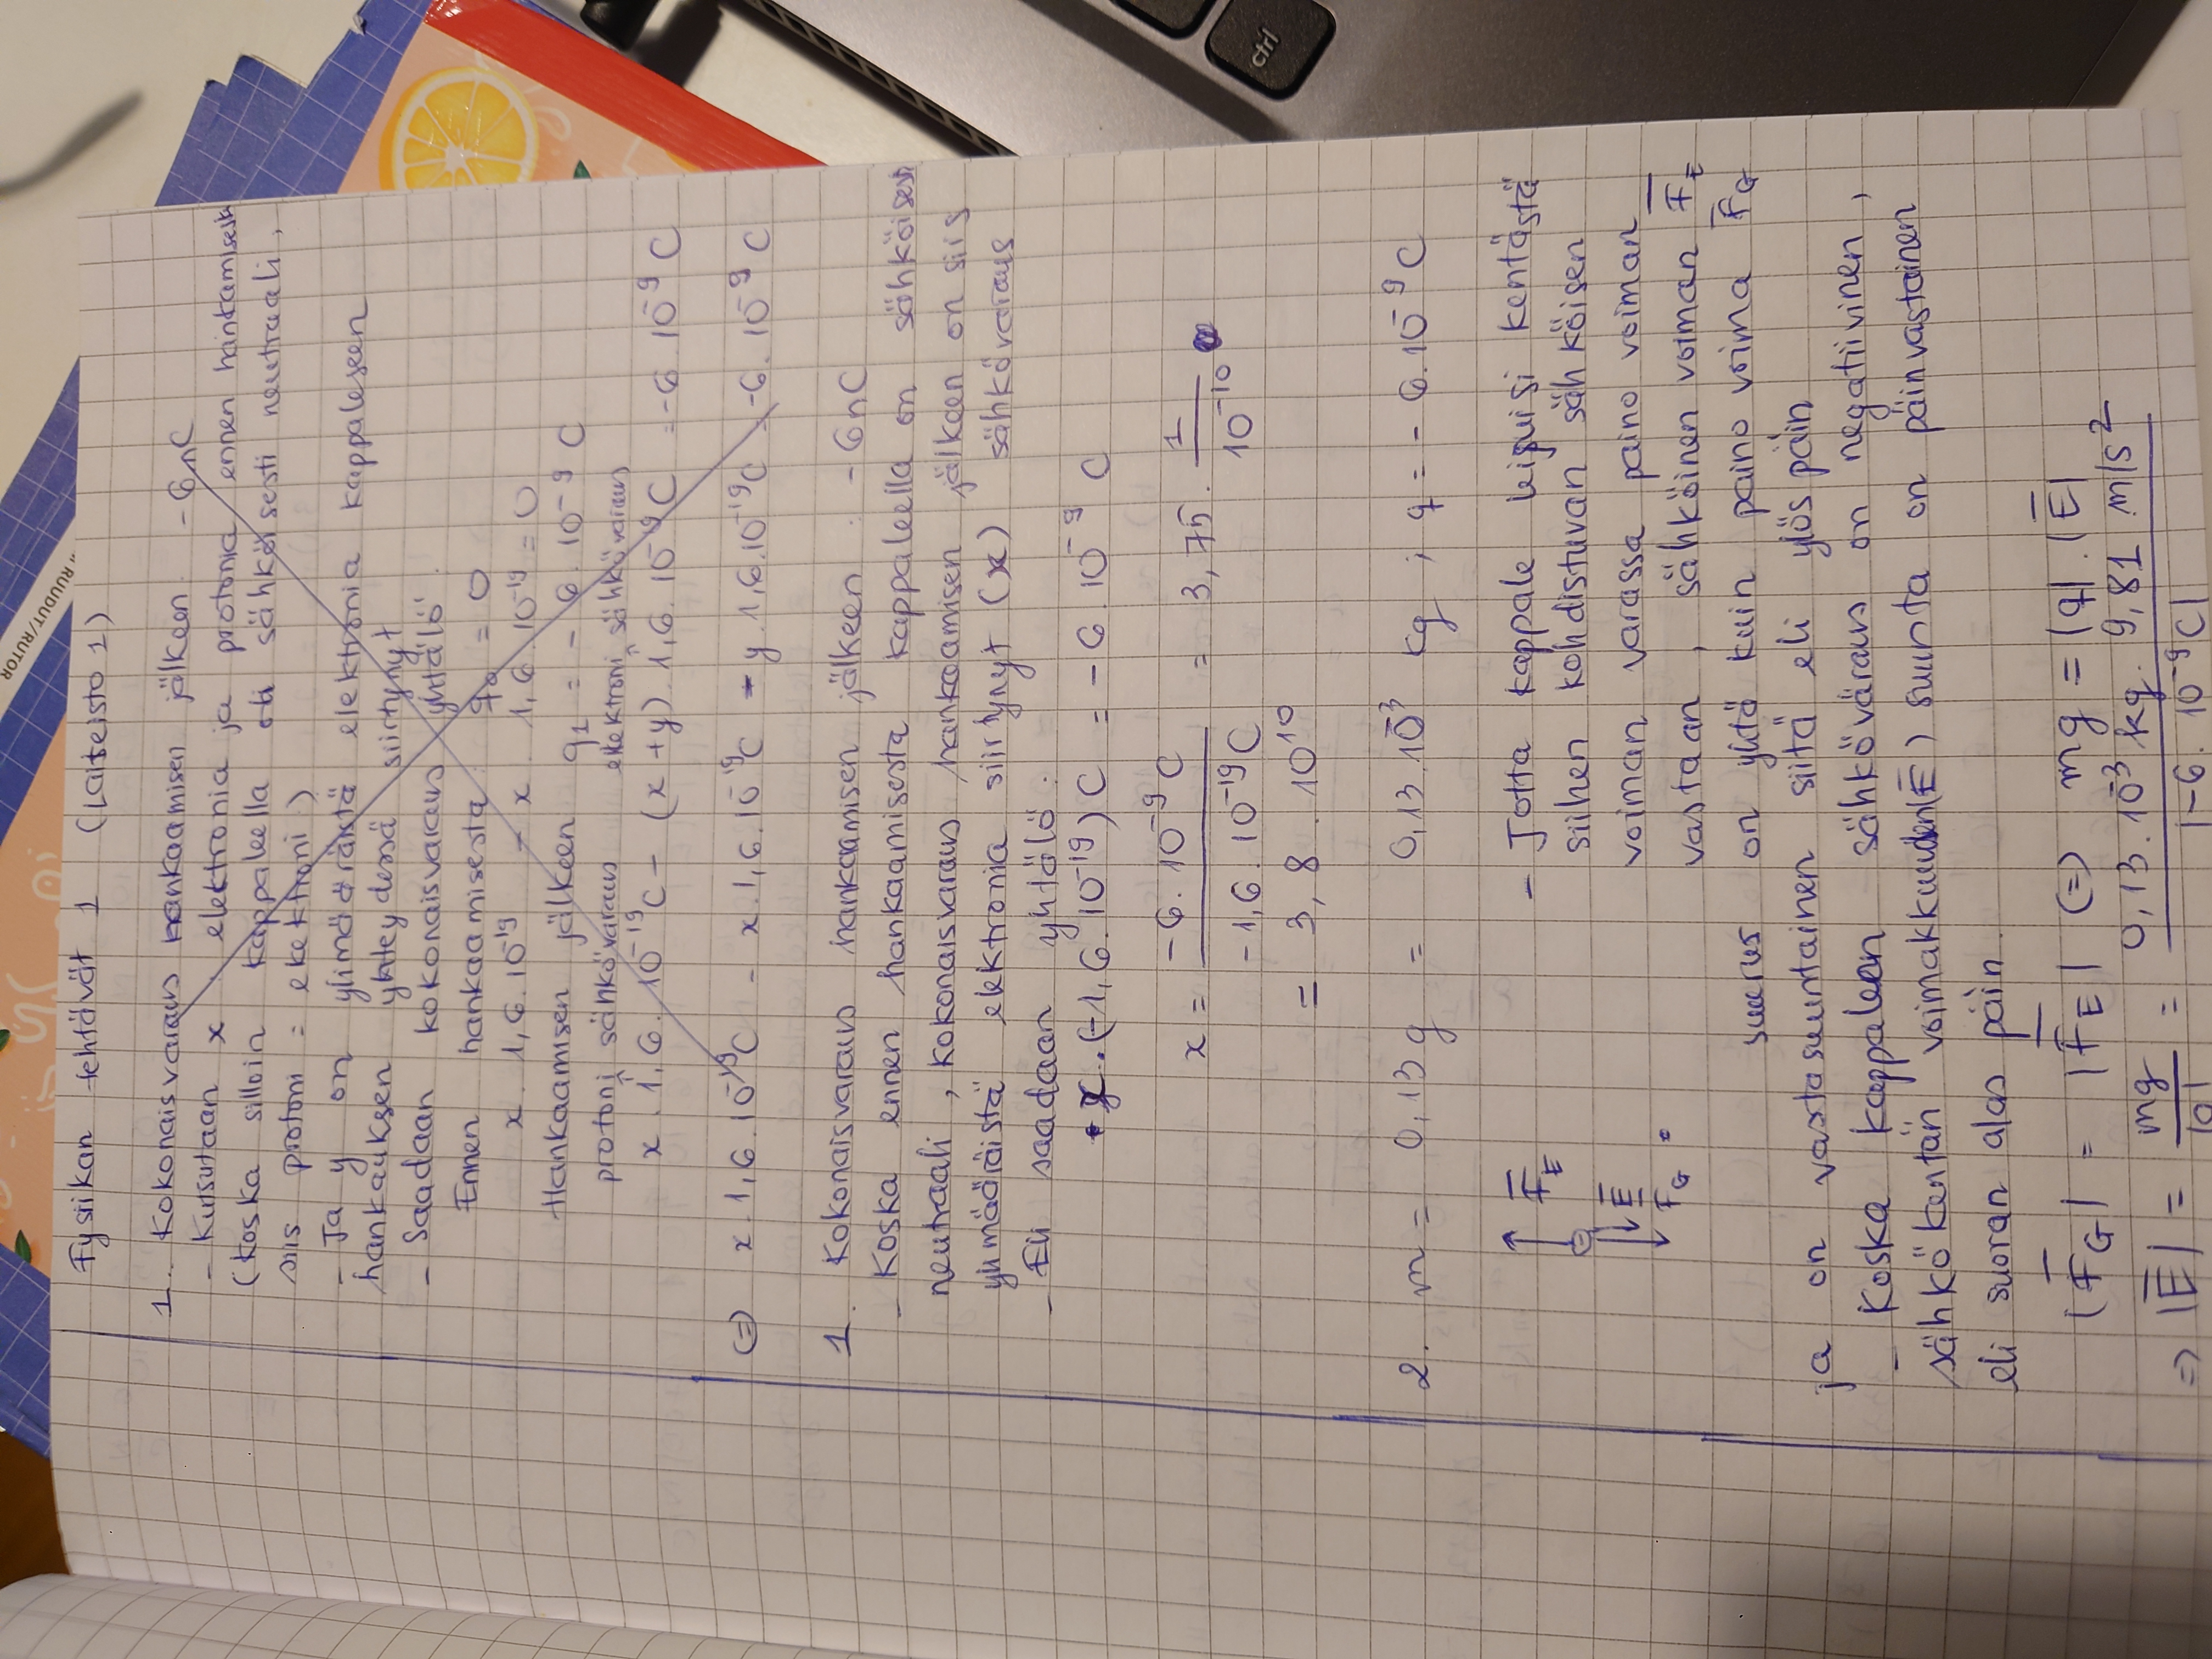 RUDUT/RUTOR
Fysiikan tehtävät 1 (Laiteisto 1)
1. Kokonaisvaraus hankaamisen jälkeen -6nC
- Kutsutaan x elektronia ja protonia ennen hankamisesta
(Koska silloin kappaleella oli sähköisesti neutraali,
siis protoni = elektroni)
- Ja y on ylimääräistä elektronia kappaleseen
hankauksen yhteydessä siirtynyt
- Saadaan kokonaisvaraus yhtälö
Ennen hankaamisesta q₀ = 0
x . 1,6.10⁻¹⁹ - x . 1,6.10⁻¹⁹ = 0
Hankaamisen jälkeen q₁ = - 6.10⁻⁹ C
protoni sähkövaraus elektroni sähkövaraus
x . 1,6.10⁻¹⁹C - (x+y) 1,6.10⁻¹⁹C = -6.10⁻⁹ C
⇔ x.1,6.10⁻¹⁹C - x.1,6.10⁻¹⁹C - y.1,6.10⁻¹⁹C = -6.10⁻⁹ C
1. Kokonaisvaraus hankaamisen jälkeen : -6nC
- Koska ennen hankaamisesta kappaleella on sähköisesti
neutraali, kokonaisvaraus hankaamisen jälkeen on siis
ylimääräistä elektronia siirtynyt (x) sähkövaraus
- Eli saadaan yhtälö:
x.(-1,6.10⁻¹⁹)C = -6.10⁻⁹ C
x = -6.10⁻⁹ C / -1,6.10⁻¹⁹C = 3,75. 1/10⁻¹⁰
= 3,8.10¹⁰
ctrl
2. m = 0,13g = 0,13.10⁻³ kg ; q = -6.10⁻⁹C
F̅_E
E̅
F̅_G
- Jotta kappale leijuisi kentästä
siihen kohdistuvan sähköisen
voiman varassa paino voiman
vastaan, sähköinen voiman F̅_E
suurus on yhtä kuin paino voima F̅_G
ja on vastasuuntainen siitä eli ylös päin
- Koska kappaleen sähköväraus on negatiivinen,
sähkökentän voimakkuuden(E̅) suunta on päinvastainen
eli suoran alas päin.
|F̅_G| = |F̅_E| ⇔ mg = |q|.|E̅|
⇒ |E̅| = mg/|q| = 0,13.10⁻³ kg. 9,81 m/s² / |-6.10⁻⁹C|